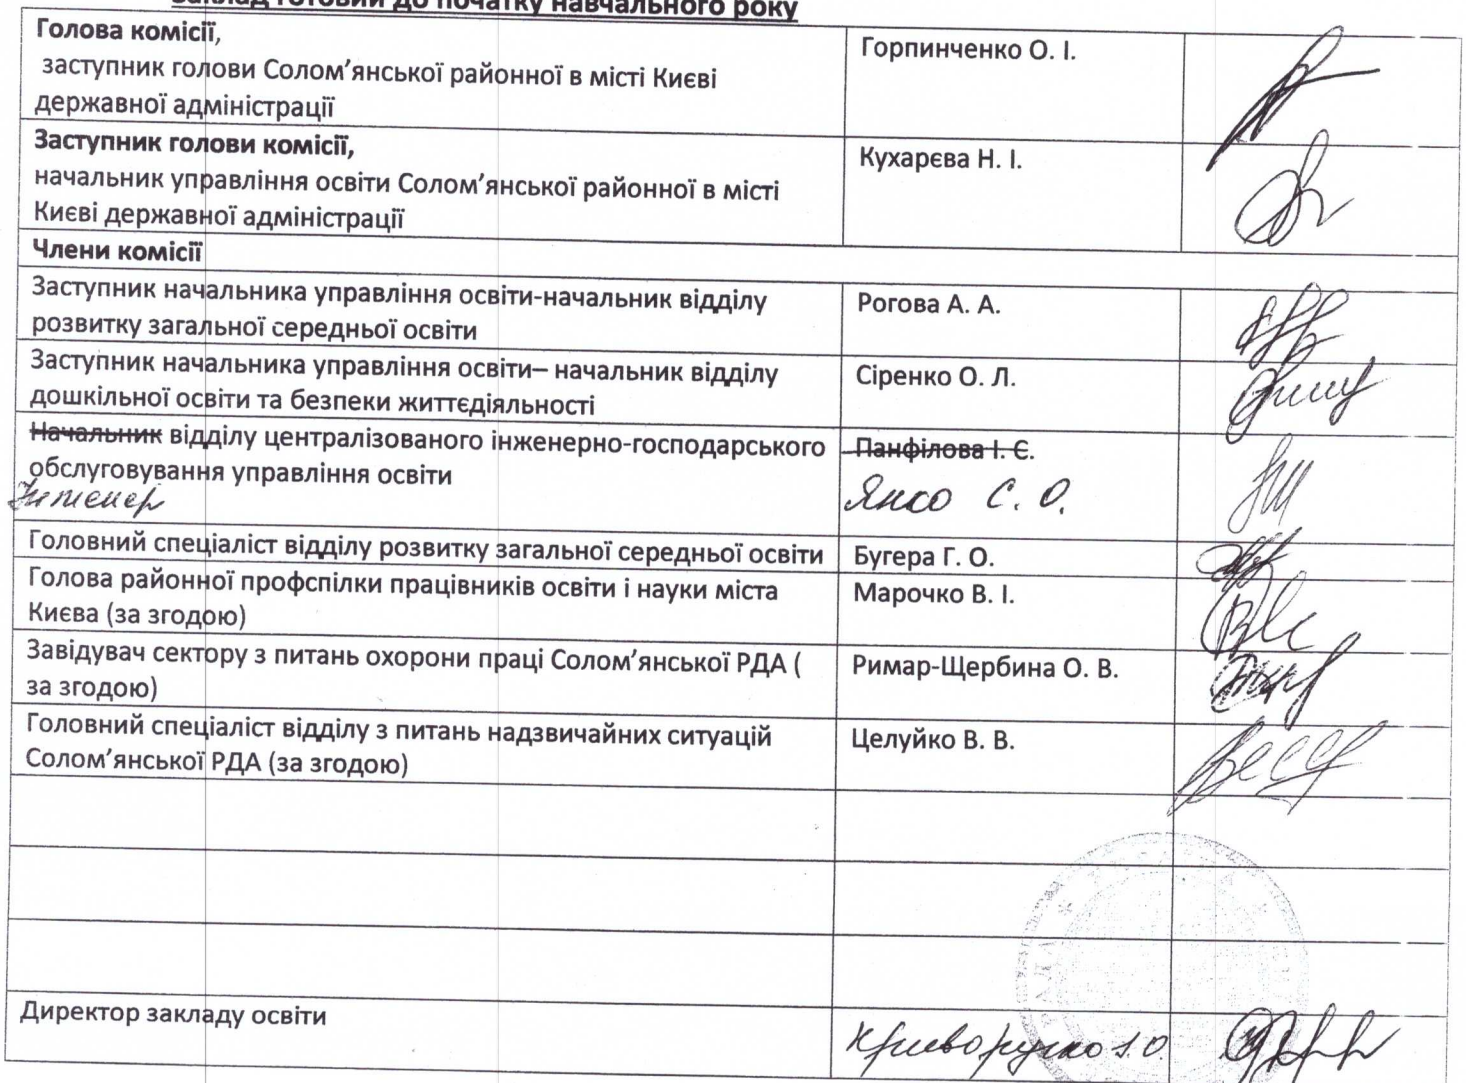 Заклад готовий до початку навчального року
Голова комісії,
заступник голови Солом’янської районної в місті Києві
державної адміністрації
Горпинченко О. І.
Заступник голови комісії,
начальник управління освіти Солом’янської районної в місті
Києві державної адміністрації
Кухарєва Н. І.
Члени комісії
Заступник начальника управління освіти-начальник відділу
розвитку загальної середньої освіти
Рогова А. А.
Заступник начальника управління освіти– начальник відділу
дошкільної освіти та безпеки життєдіяльності
Сіренко О. Л.
Начальник відділу централізованого інженерно-господарського
обслуговування управління освіти
Інженер
Панфілова І. Є.
Янсо С. О.
Головний спеціаліст відділу розвитку загальної середньої освіти
Бугера Г. О.
Голова районної профспілки працівників освіти і науки міста
Києва (за згодою)
Марочко В. І.
Завідувач сектору з питань охорони праці Солом’янської РДА (
за згодою)
Римар-Щербина О. В.
Головний спеціаліст відділу з питань надзвичайних ситуацій
Солом’янської РДА (за згодою)
Целуйко В. В.
Директор закладу освіти
Криворучко